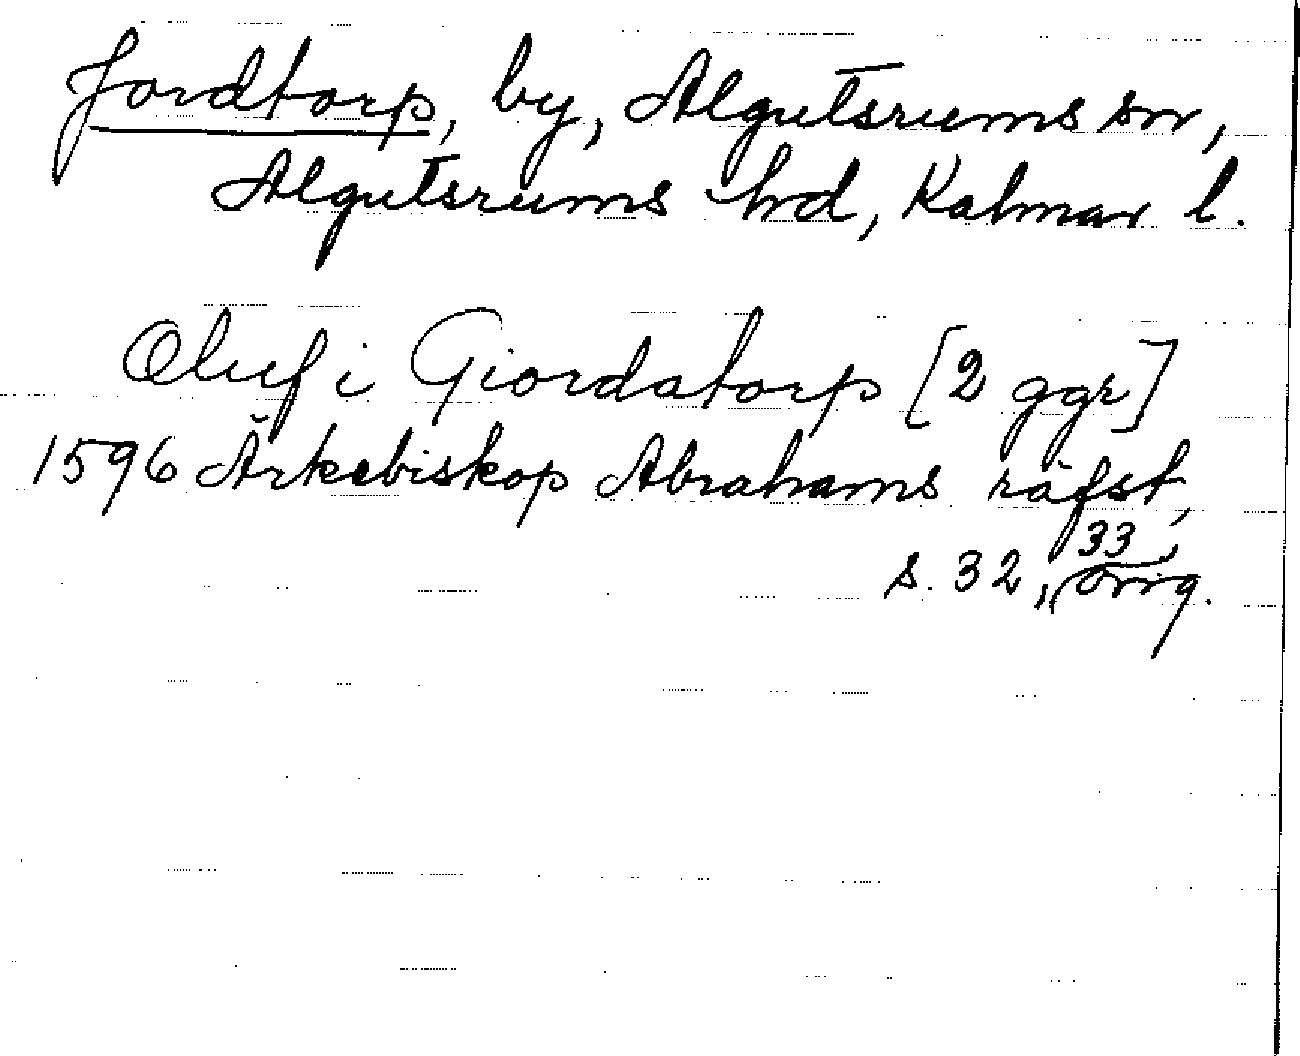 Jordtorp, by, Algutsrums sn,
Algutsrums hd, Kalmar l.
Oluf i Giordatorp [2 ggr]
1596 Ärkebiskop Abrahams räfst,
s. 32, 33, orig.